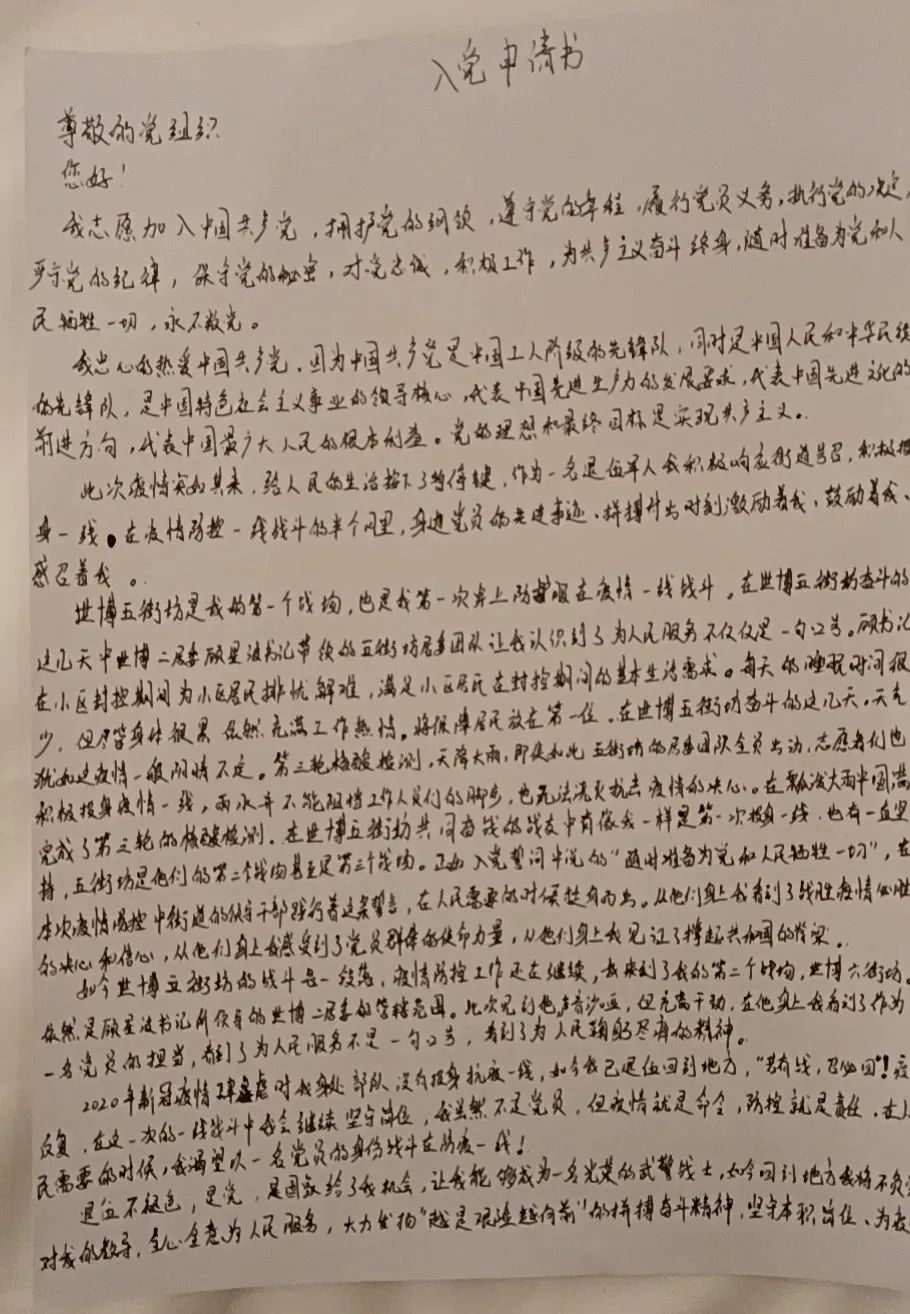 入党申请书
尊敬的党组织
您好！
我志愿加入中国共产党，拥护党的纲领，遵守党的章程，履行党员义务，执行党的决定，
严守党的纪律，保守党的秘密，对党忠诚，积极工作，为共产主义奋斗终身，随时准备为党和人
民牺牲一切，永不叛党。
我忠心的热爱中国共产党。因为中国共产党是中国工人阶级的先锋队，同时是中国人民和中华民族
的先锋队，是中国特色社会主义事业的领导核心，代表中国先进生产力的发展要求，代表中国先进文化的
前进方向，代表中国最广大人民的根本利益。党的理想和最终目标是实现共产主义。
此次疫情突如其来，给人民的生活按下了暂停键，作为一名退伍军人我积极响应街道号召，积极投
身一线。在疫情防控一线战斗的半个月里，身边党员的先进事迹、拼搏付出时刻激励着我、鼓励着我、
感召着我。
世博五街坊是我的第一个战场，也是我第一次穿上防护服在疫情一线战斗。在世博五街坊奋斗的
这几天中世博二居委顾星波书记带领的五街坊居委团队让我认识到了为人民服务不仅仅是一句口号。顾书记
在小区封控期间为小区居民排忧解难，满足小区居民在封控期间的基本生活需求。每天的睡眠时间很
少，但尽管身体很累依然充满工作热情。将保障居民放在第一位。在世博五街坊奋斗的这几天，天气
犹如这疫情一般阴晴不定。第三轮核酸检测，天降大雨，即使如此五街坊的居委团队全员出动，志愿者们也
积极投身疫情一线，雨水并不能阻挡工作人员们的脚步，也无法浇灭抗击疫情的决心。在瓢泼大雨中圆满
完成了第三轮的核酸检测。在世博五街坊共同奋战的战友中有像我一样是第一次投身一线，也有一直坚
持，五街坊是他们的第二个战场甚至是第三个战场。正如入党誓词中说的“随时准备为党和人民牺牲一切”，在
本次疫情防控中街道的领导干部践行着这条誓言，在人民需要的时候挺身而出。从他们身上我看到了战胜疫情必胜
的决心和信心，从他们身上我感受到了党员群体的使命力量，从他们身上我见证了撑起共和国的脊梁。
如今世博五街坊的战斗告一段落，疫情防控工作还在继续，我来到了我的第二个战场，世博六街坊。
依然是顾星波书记所领导的世博二居委的管辖范围。此次见到他声音沙哑，但充满干劲，在他身上我看到了作为
一名党员的担当，看到了为人民服务不是一句口号，看到了为人民鞠躬尽瘁的精神。
2020年新冠疫情肆虐时我身处部队没有投身抗疫一线，如今我已退伍回到地方，“若有战，召必回”！疫
反复，在这一次的一线战斗中我会继续坚守岗位，我虽然不是党员，但疫情就是命令，防控就是责任。在人
民需要的时候，我渴望以一名党员的身份战斗在防疫一线！
退伍不褪色，是党，是国家给了我机会，让我能够成为一名光荣的武警战士，如今回到地方我将不负
对我的教导，全心全意为人民服务，大力发扬“越是艰险越向前”的拼搏奋斗精神，坚守本职岗位、为疫